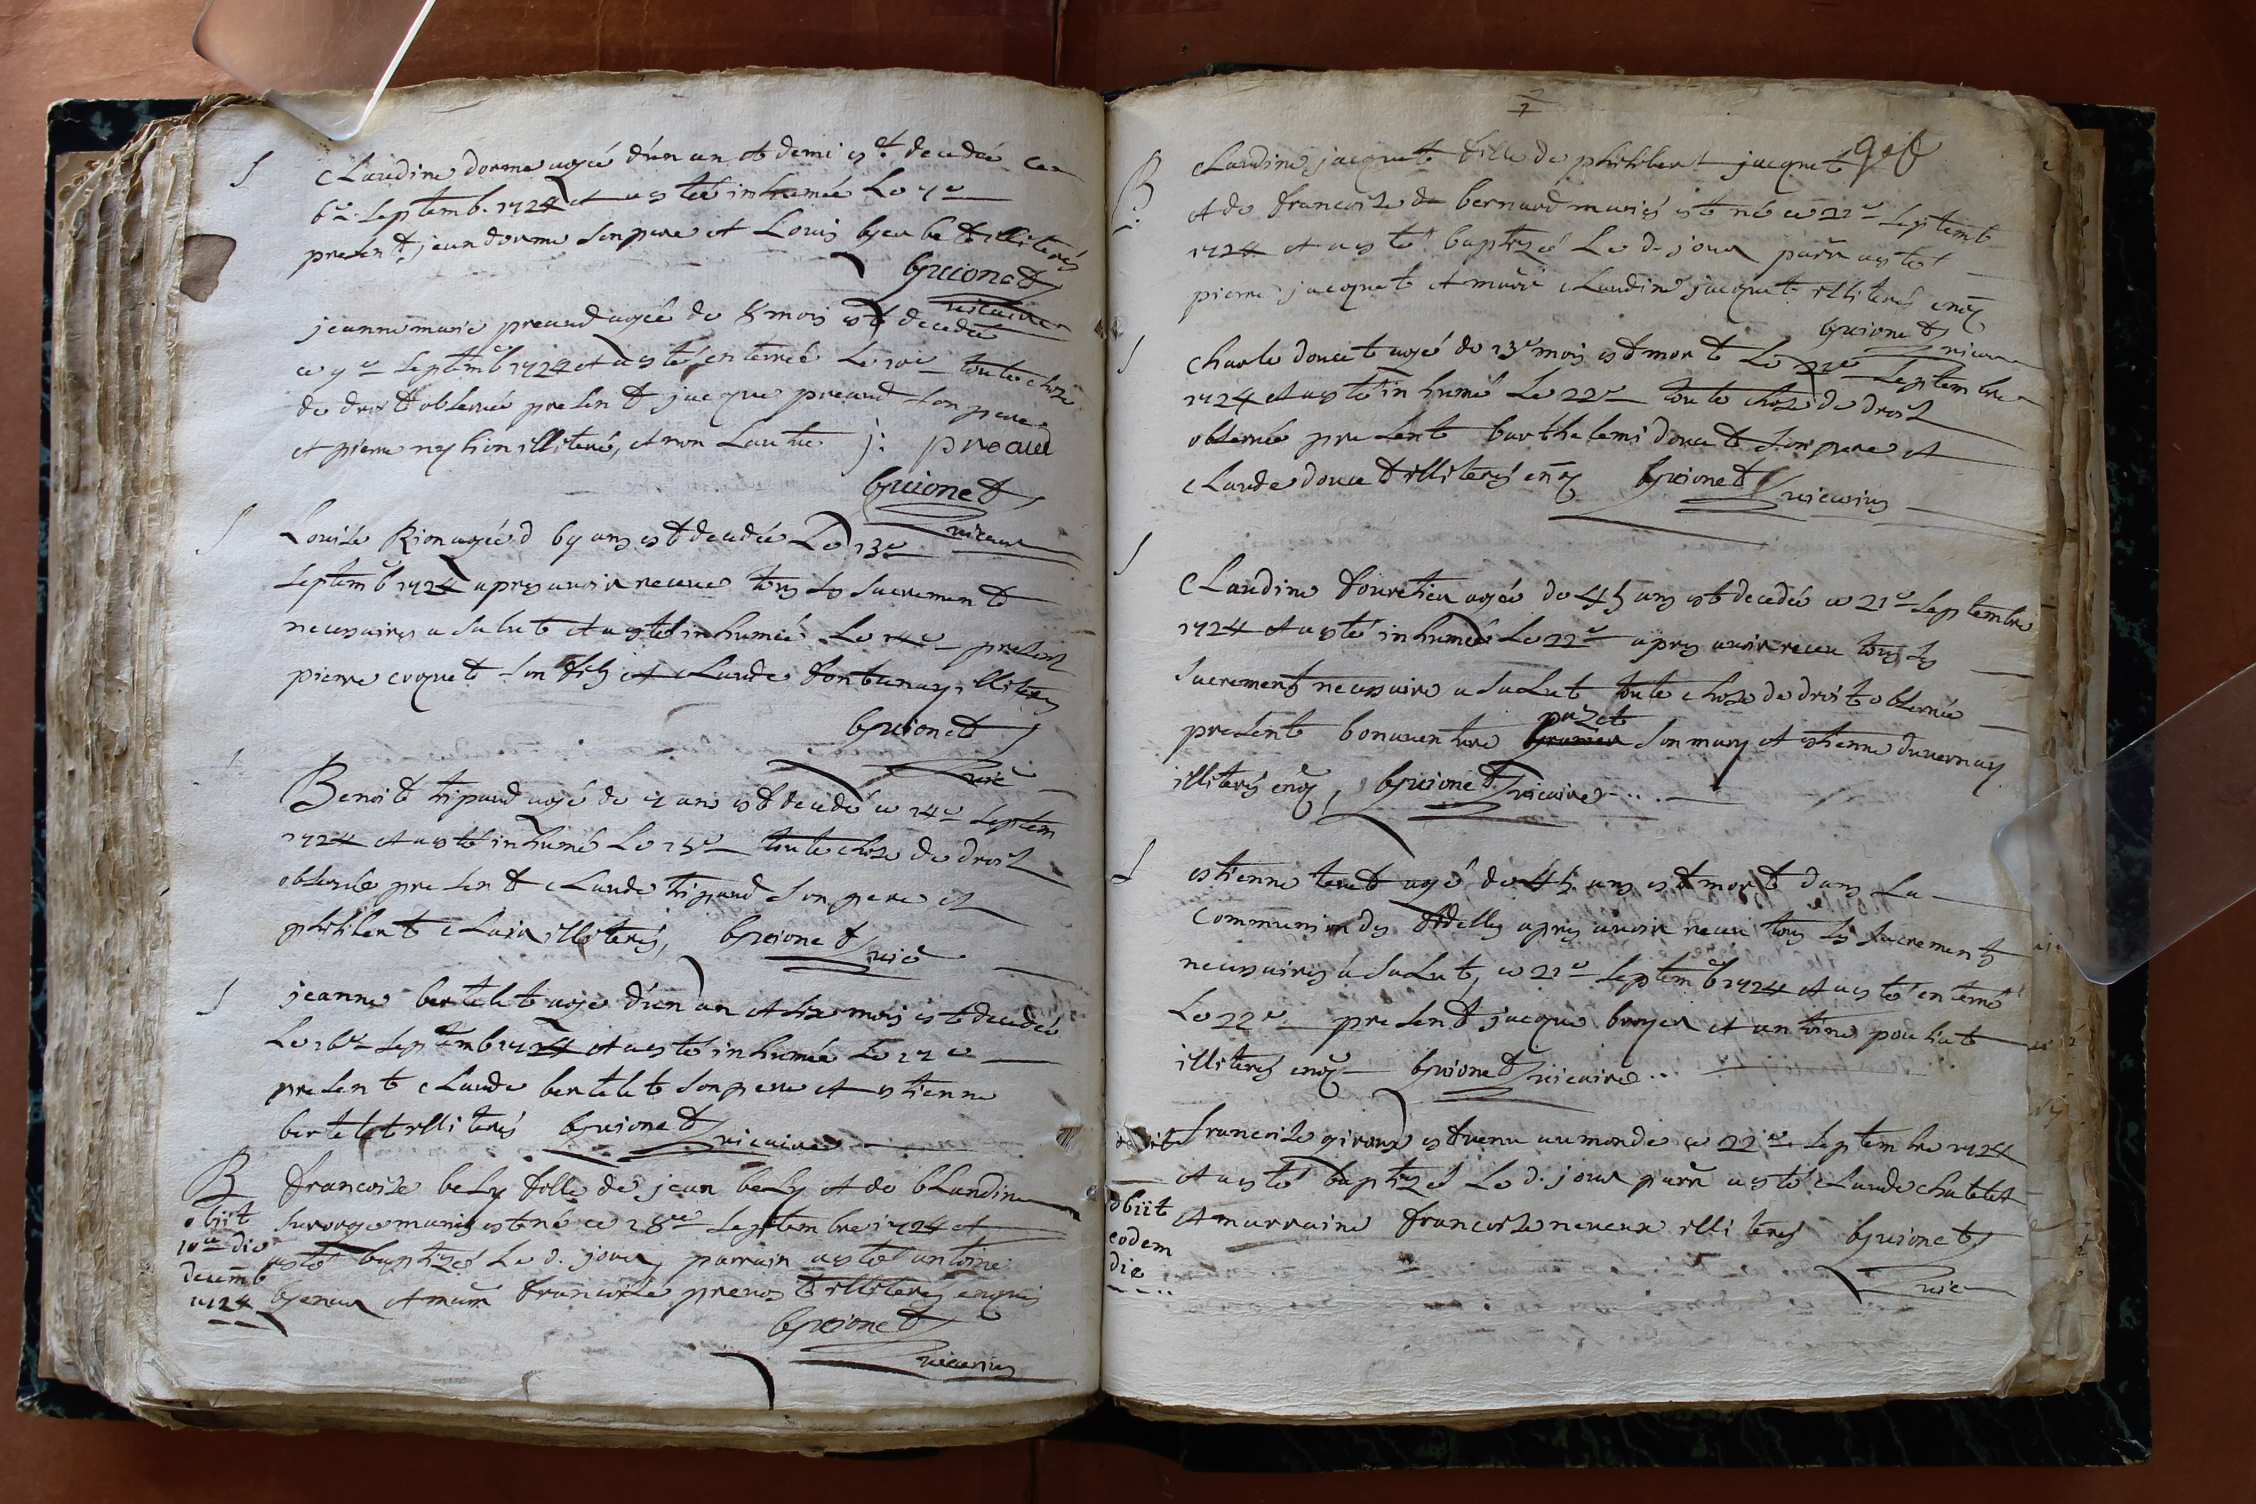 S
Claudine dorme agée d'un an et demi est decedée ce
6e septemb. 1724 et a esté inhumée Le 7e
present jean dorme son pere et Louis illiterés
Guionet
vicaire
jeanne marie preaud agée de 8 mois est decedée
ce 9e septemb 1724 et a esté enterrée Le 10e toute chose
de droit observée present jacque preaud son pere
et pierre illiteré, et non L'autre j: preaud
Guionet
vicaire
S
Louise Rion agée d 69 ans est decedée Le 13e
septemb 1724 apres avoir receue tous les sacrement
necessaires a salut et a esté inhumée Le 14e present
pierre coquet son fils et Claude fontanay illiterés
Guionet
vic
Benoit tipaud agé de 7 ans est decedé ce 14e septem
1724 et a esté inhumé Le 15e toute chose de droit
observée present Claude tipaud son pere et
philibert Clair illiterés, Guionet vic
S
jeanne bertelet agée d'un an et six mois est decedée
Le 16e septemb 1724 et a esté inhumée Le 17e
present Claude bertelet son pere et estienne
bertelet illiterés Guionet vicaire
B
francoise bely fille de jean bely et de bLandine
mariés est né ce 18e septembre 1724 et
a esté baptizé Le d. jour, parrain a esté antoine
et marr francoise prevost illiterés enquis
obiit
10a die
decemb
1724
Guionet
vicarius
B
Claudine jacquet fille de philibert jacquet
et de francoise de bernard mariés est né ce 21e septemb
1724 et a esté baptizé Le d. jour parr a esté
pierre jacquet et marr Claudine jacquet illiterés enq
Guionet vicaire
S
charle doucet agé de 13 mois est mort Le 21e septembre
1724 et a esté inhumé Le 22e toute chose de droit
observée present barthelemi doucet son pere et
Claude doucet illiterés enq Guionet vicarius
S
Claudine fouretier agée de 45 ans est decedée ce 21e septembre
1724 et a esté inhumée Le 22e apres avoir receu tous les
sacrement necessaire a saLut toute chose de droit observée
present bonaventure pazet son mary et estienne duvernay
illiterés enq, Guionet vicaire
S
estienne teret agé de 45 ans est mort dans La
communion des fidelles apres avoir receu tous les sacrements
necessaires a saLut, ce 21e septemb 1724 et a esté enterré
Le 22e present jacque boyer et antoine pouhat
illiterés enq Guionet vicaire
francoise giroud est venu au monde ce 22e septembre 1724
et a esté baptizé Le d. jour parr a esté Claude chatelet
et marraine francoise neveux illiterés Guionet
vic
obiit
eodem
die